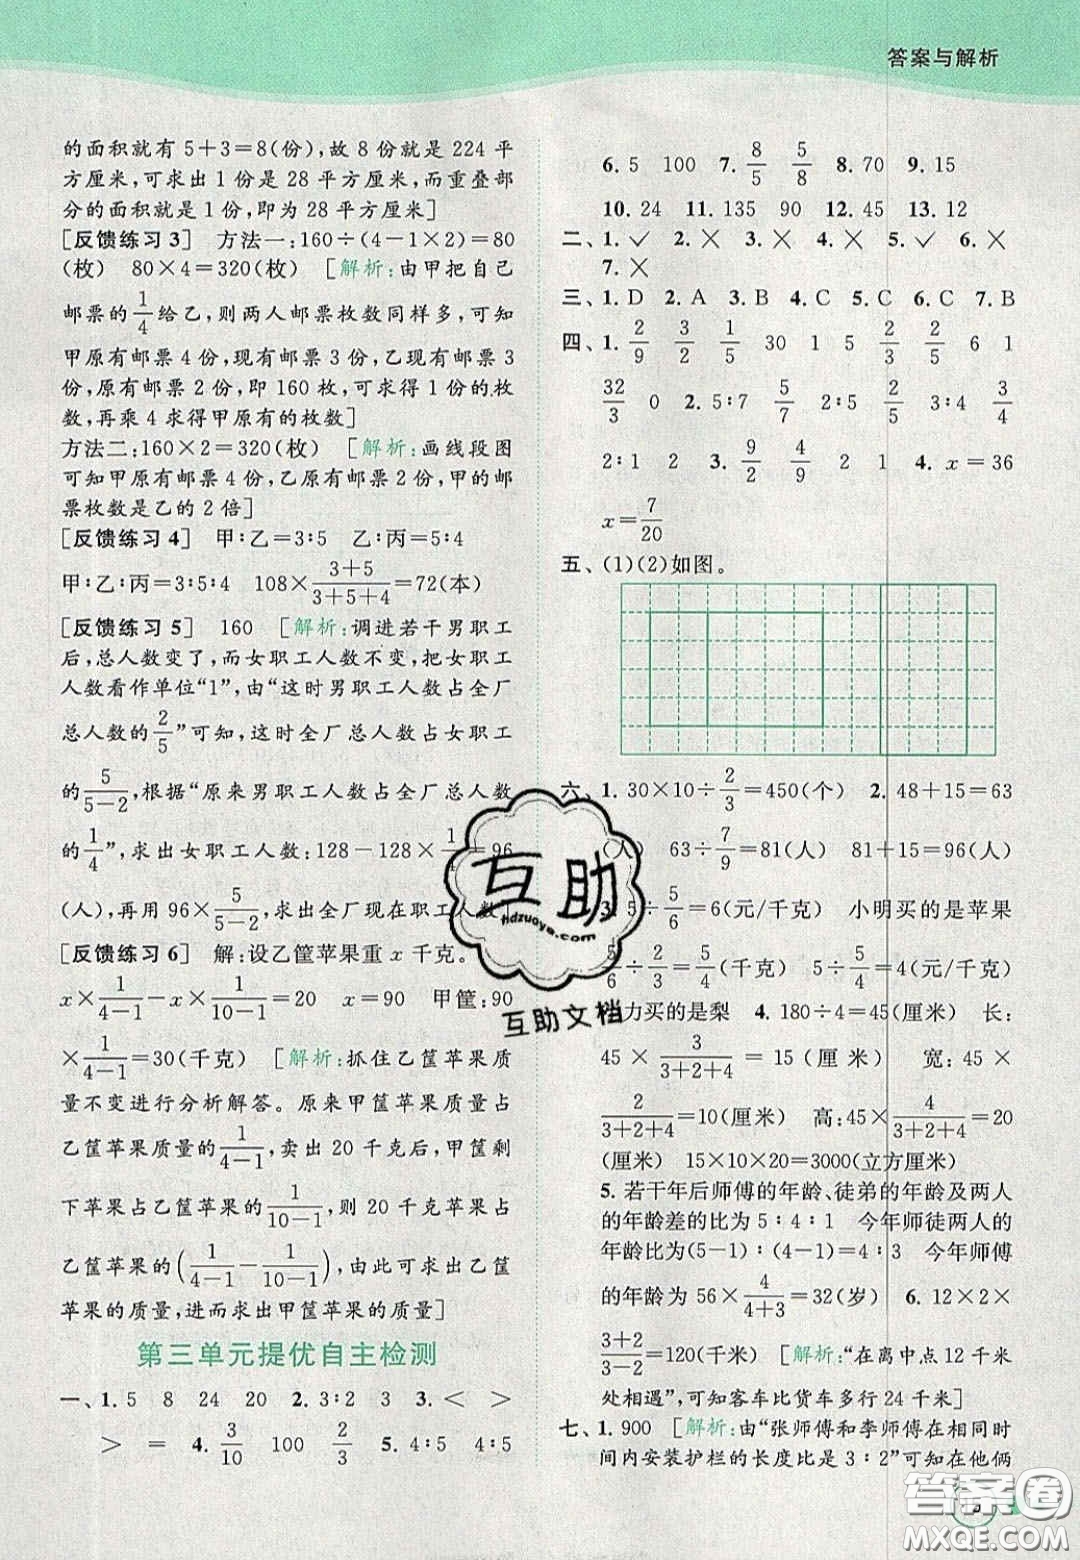 答案与解析
的面积就有 5+3=8(份),故 8 份就是 224 平
方厘米,可求出 1 份是 28 平方厘米,而重叠部
分的面积就是 1 份,即为 28 平方厘米]
[反馈练习 3] 方法一:160÷(4-1×2)=80
(枚) 80×4=320(枚) [解析:由甲把自己
邮票的1/4给乙,则两人邮票枚数同样多,可知
甲原有邮票 4 份,现有邮票 3 份,乙现有邮票 3
份,原有邮票 2 份,即 160 枚,可求得 1 份的枚
数,再乘 4 求得甲原有的枚数]
方法二:160×2=320(枚) [解析:画线段图
可知甲原有邮票 4 份,乙原有邮票 2 份,甲的邮
票枚数是乙的 2 倍]
[反馈练习 4] 甲:乙=3:5 乙:丙=5:4
甲:乙:丙=3:5:4 108×(3+5)/(3+5+4)=72(本)
[反馈练习 5] 160 [解析:调进若干男职工
后,总人数变了,而女职工人数不变,把女职工
人数看作单位“1”,由“这时男职工人数占全厂
总人数的2/5”可知,这时全厂总人数占女职工
的5/(5-2),根据“原来男职工人数占全厂总人数
的1/4”,求出女职工人数:128-128×1/4=96
(人),再用 96×5/(5-2),求出全厂现在职工人数]
[反馈练习 6] 解:设乙筐苹果重 x 千克。
x×1/(4-1)-x×1/(10-1)=20 x=90 甲筐:90
×1/(4-1)=30(千克) [解析:抓住乙筐苹果质
量不变进行分析解答。原来甲筐苹果质量占
乙筐苹果质量的1/(4-1),卖出 20 千克后,甲筐剩
下苹果占乙筐苹果的1/(10-1),则 20 千克苹果占
乙筐苹果的(1/(4-1)-1/(10-1)),由此可求出乙筐
苹果的质量,进而求出甲筐苹果的质量]
第三单元提优自主检测
一、1. 5 8 24 20 2. 3:2 3 3. < >
> = 4. 3/10 100 2/3 5. 4:5 4:5
6. 5 100 7. 8/5 5/8 8. 70 9. 15
10. 24 11. 135 90 12. 45 13. 12
二、1. ✓ 2. × 3. × 4. × 5. ✓ 6. ×
7. ×
三、1. D 2. A 3. B 4. C 5. C 6. C 7. B
四、1. 2/9 3/2 1/5 30 1 5 2/3 2/5 6 1
32/3 0 2. 5:7 5/7 2:5 2/5 3:4 3/4
2:1 2 3. 9/2 4/9 2 1 4. x=36
x=7/20
五、(1)(2)如图。
六、1. 30×10÷2/3=450(个) 2. 48+15=63
(人) 63÷7/9=81(人) 81+15=96(人)
3. 5÷5/6=6(元/千克) 小明买的是苹果
5/6÷2/3=5/4(千克) 5÷5/4=4(元/千克)
力买的是梨 4. 180÷4=45(厘米) 长:
45×3/(3+2+4)=15(厘米) 宽:45×
2/(3+2+4)=10(厘米) 高:45×4/(3+2+4)=20
(厘米) 15×10×20=3000(立方厘米)
5. 若干年后师傅的年龄、徒弟的年龄及两人
的年龄差的比为 5:4:1 今年师徒两人的
年龄比为(5-1):(4-1)=4:3 今年师傅
的年龄为 56×4/(4+3)=32(岁) 6. 12×2×
(3+2)/(3-2)=120(千米) [解析:“在离中点 12 千米
处相遇”,可知客车比货车多行 24 千米]
七、1. 900 [解析:由“张师傅和李师傅在相同时
间内安装护栏的长度比是 3:2”可知在他俩
互助
hdzuoye.com
互助文档
答案圈
MXQE.COM